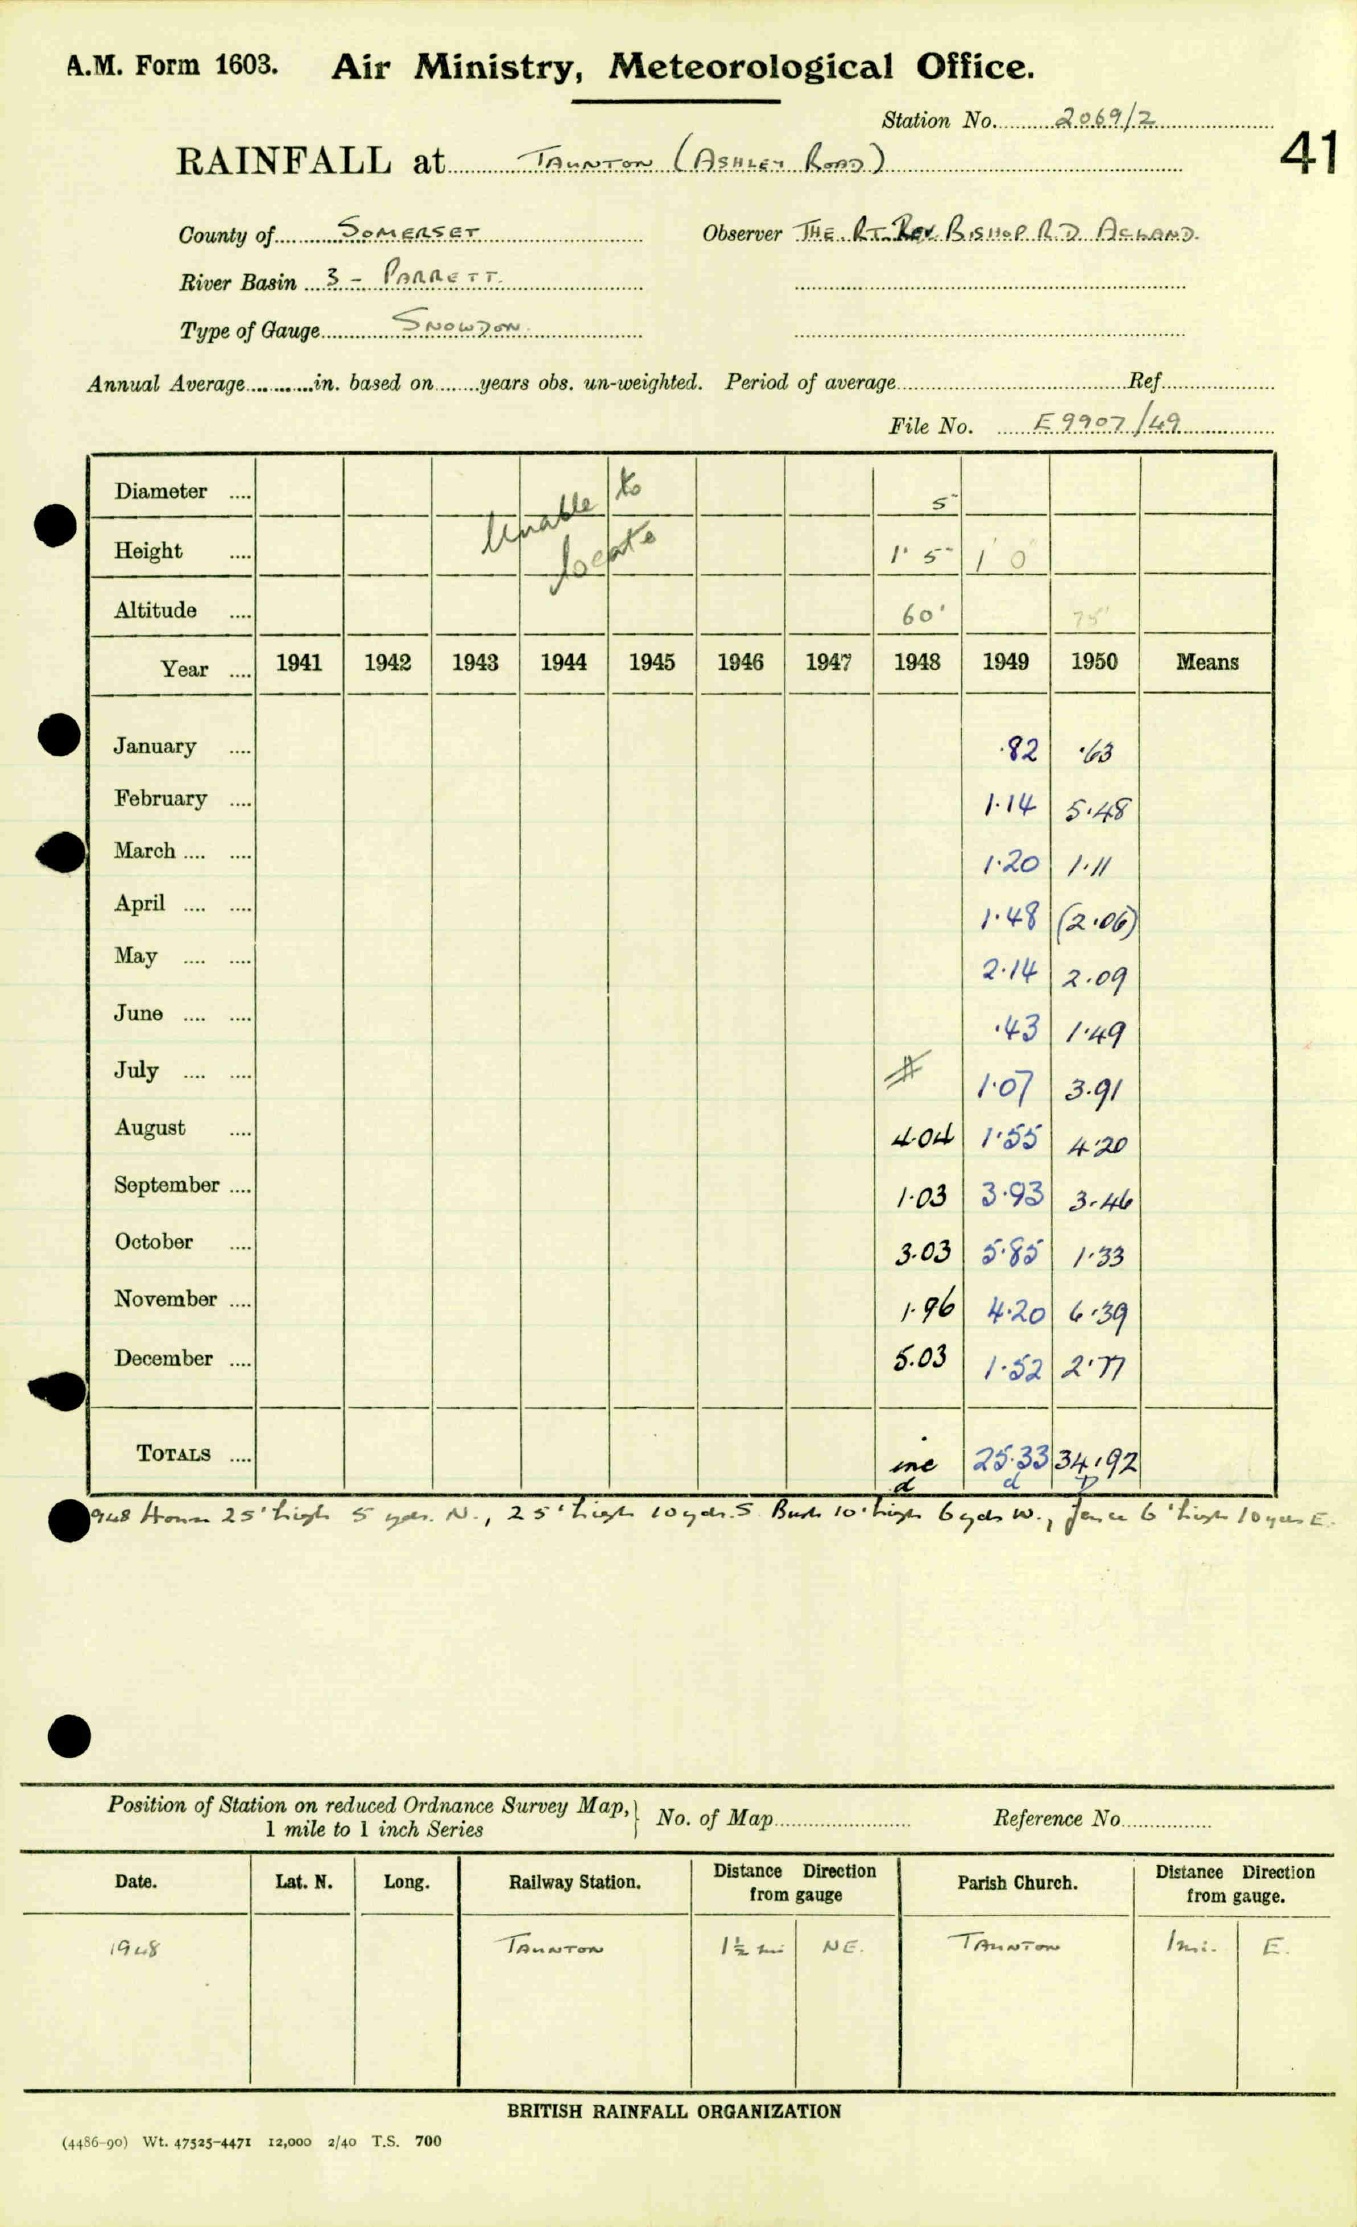 A.M. Form 1603. Air Ministry, Meteorological Office.
Station No. 2069/2
41
RAINFALL at TAUNTON (ASHLEY ROAD)
County of SOMERSET Observer THE RT. REV. BISHOP R.D. ACLAND.
River Basin 3 - PARRETT.
Type of Gauge SNOWDON.
Annual Average............in. based on........years obs. un-weighted. Period of average........ Ref........
File No. E9907/49
Diameter .... 5"
Unable to
locate
Height .... 1' 5" 1' 0"
Altitude .... 60' 75'
Year .... 1941 1942 1943 1944 1945 1946 1947 1948 1949 1950 Means
January .... ·82 ·63
February .... 1·14 5·48
March .... .... 1·20 1·11
April .... .... 1·48 (2·06)
May .... .... 2·14 2·09
June .... .... ·43 1·49
July .... .... # 1·07 3·91
August .... 4·04 1·55 4·20
September .... 1·03 3·93 3·46
October .... 3·03 5·85 1·33
November .... 1·96 4·20 6·39
December .... 5·03 1·52 2·77
TOTALS .... inc 25·33 34·92
d d D
1948 House 25' high 5 yds. N., 25' high 10 yds. S. Bush 10' high 6 yds W., fence 6' high 10 yds E.
Position of Station on reduced Ordnance Survey Map, } No. of Map........ Reference No........
1 mile to 1 inch Series
Date. Lat. N. Long. Railway Station. Distance Direction Parish Church. Distance Direction
from gauge from gauge.
1948 TAUNTON 1½ mi NE. TAUNTON 1 mi. E.
BRITISH RAINFALL ORGANIZATION
(4486-90) Wt. 47525-4471 12,000 2/40 T.S. 700